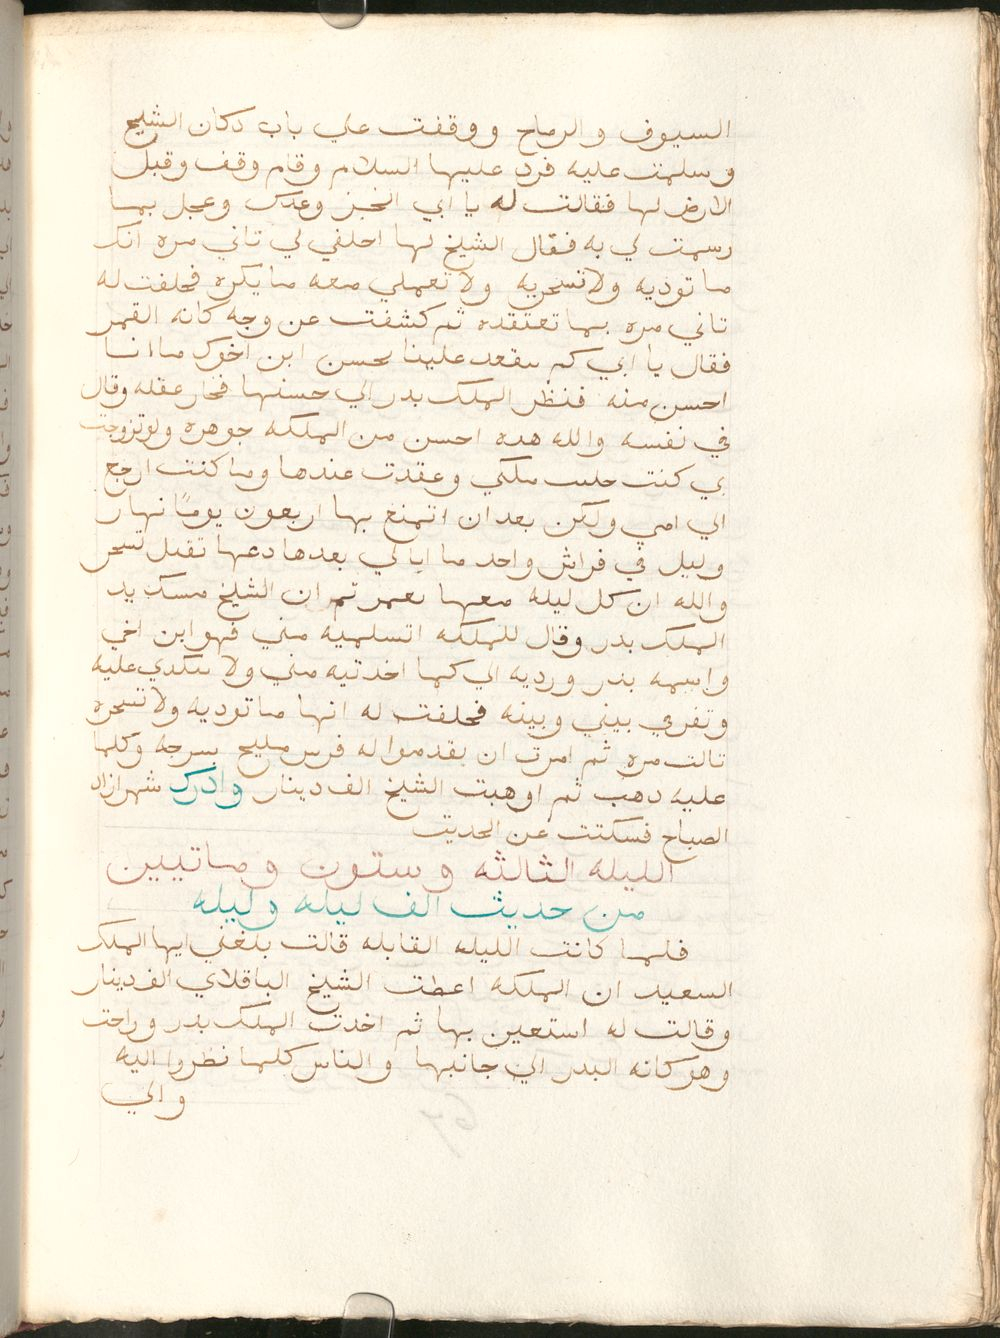 السيوف والرماح ووقفت علي باب دكان الشيخ
وسلمت عليه فرد عليها السلام وقام وقف وقبل
الارض لها فقالت له يا ابي انجز وعدك وعجل بما
رسمت لي به فقال الشيخ لها احلفي لي تاني مره انك
ما توديه ولا تسحريه ولا تعملي معه ما يكره فحلفت له
تاني مره بما تعتقده ثم كشفت عن وجه كانه القمر
فقال يا ابي كم علينا بحسن ابن اخوك ما انا
احسن منه فنظر الملك بدر الي حسنها فحار عقله وقال
في نفسه والله هده احسن من الملكه جوهره ولو تزوجت
بي كنت ملكي وعقدت عندها وما كنت ارجع
الي امي ولكن بعد ان اتمتع بها اربعون يوماً نهار
وليل في فراش واحد ما ابالي بعدها دعها تقتل تسحر
والله ان كل ليله معها بعمر تم ان الشيخ مسك يد
الملك بدر وقال للملكه اتسلميه مني فهو ابن اخي
واسمه بدر ورديه الي كما اخدتيه مني ولا عليه
وتفرقي بيني وبينه فحلفت له انها ما توديه ولا تسحره
تالت مره ثم امرت ان يقدموا له فرس مليح بسرجه وكلما
عليه دهب ثم اوهبت الشيخ الف دينار وادرك شهرازاد
الصباح فسكتت عن الحديت
الليله الثالثه وستون وماتيين
من حديث الف ليله وليله
فلما كانت الليله القابله قالت بلغني ايها الملك
السعيد ان الملكه اعطت الشيخ الباقلاي الف دينار
وقالت له استعين بها ثم اخدت الملك بدر وراحت
وهو كانه البدر الي جانبها والناس كلها نظروا اليه
والي